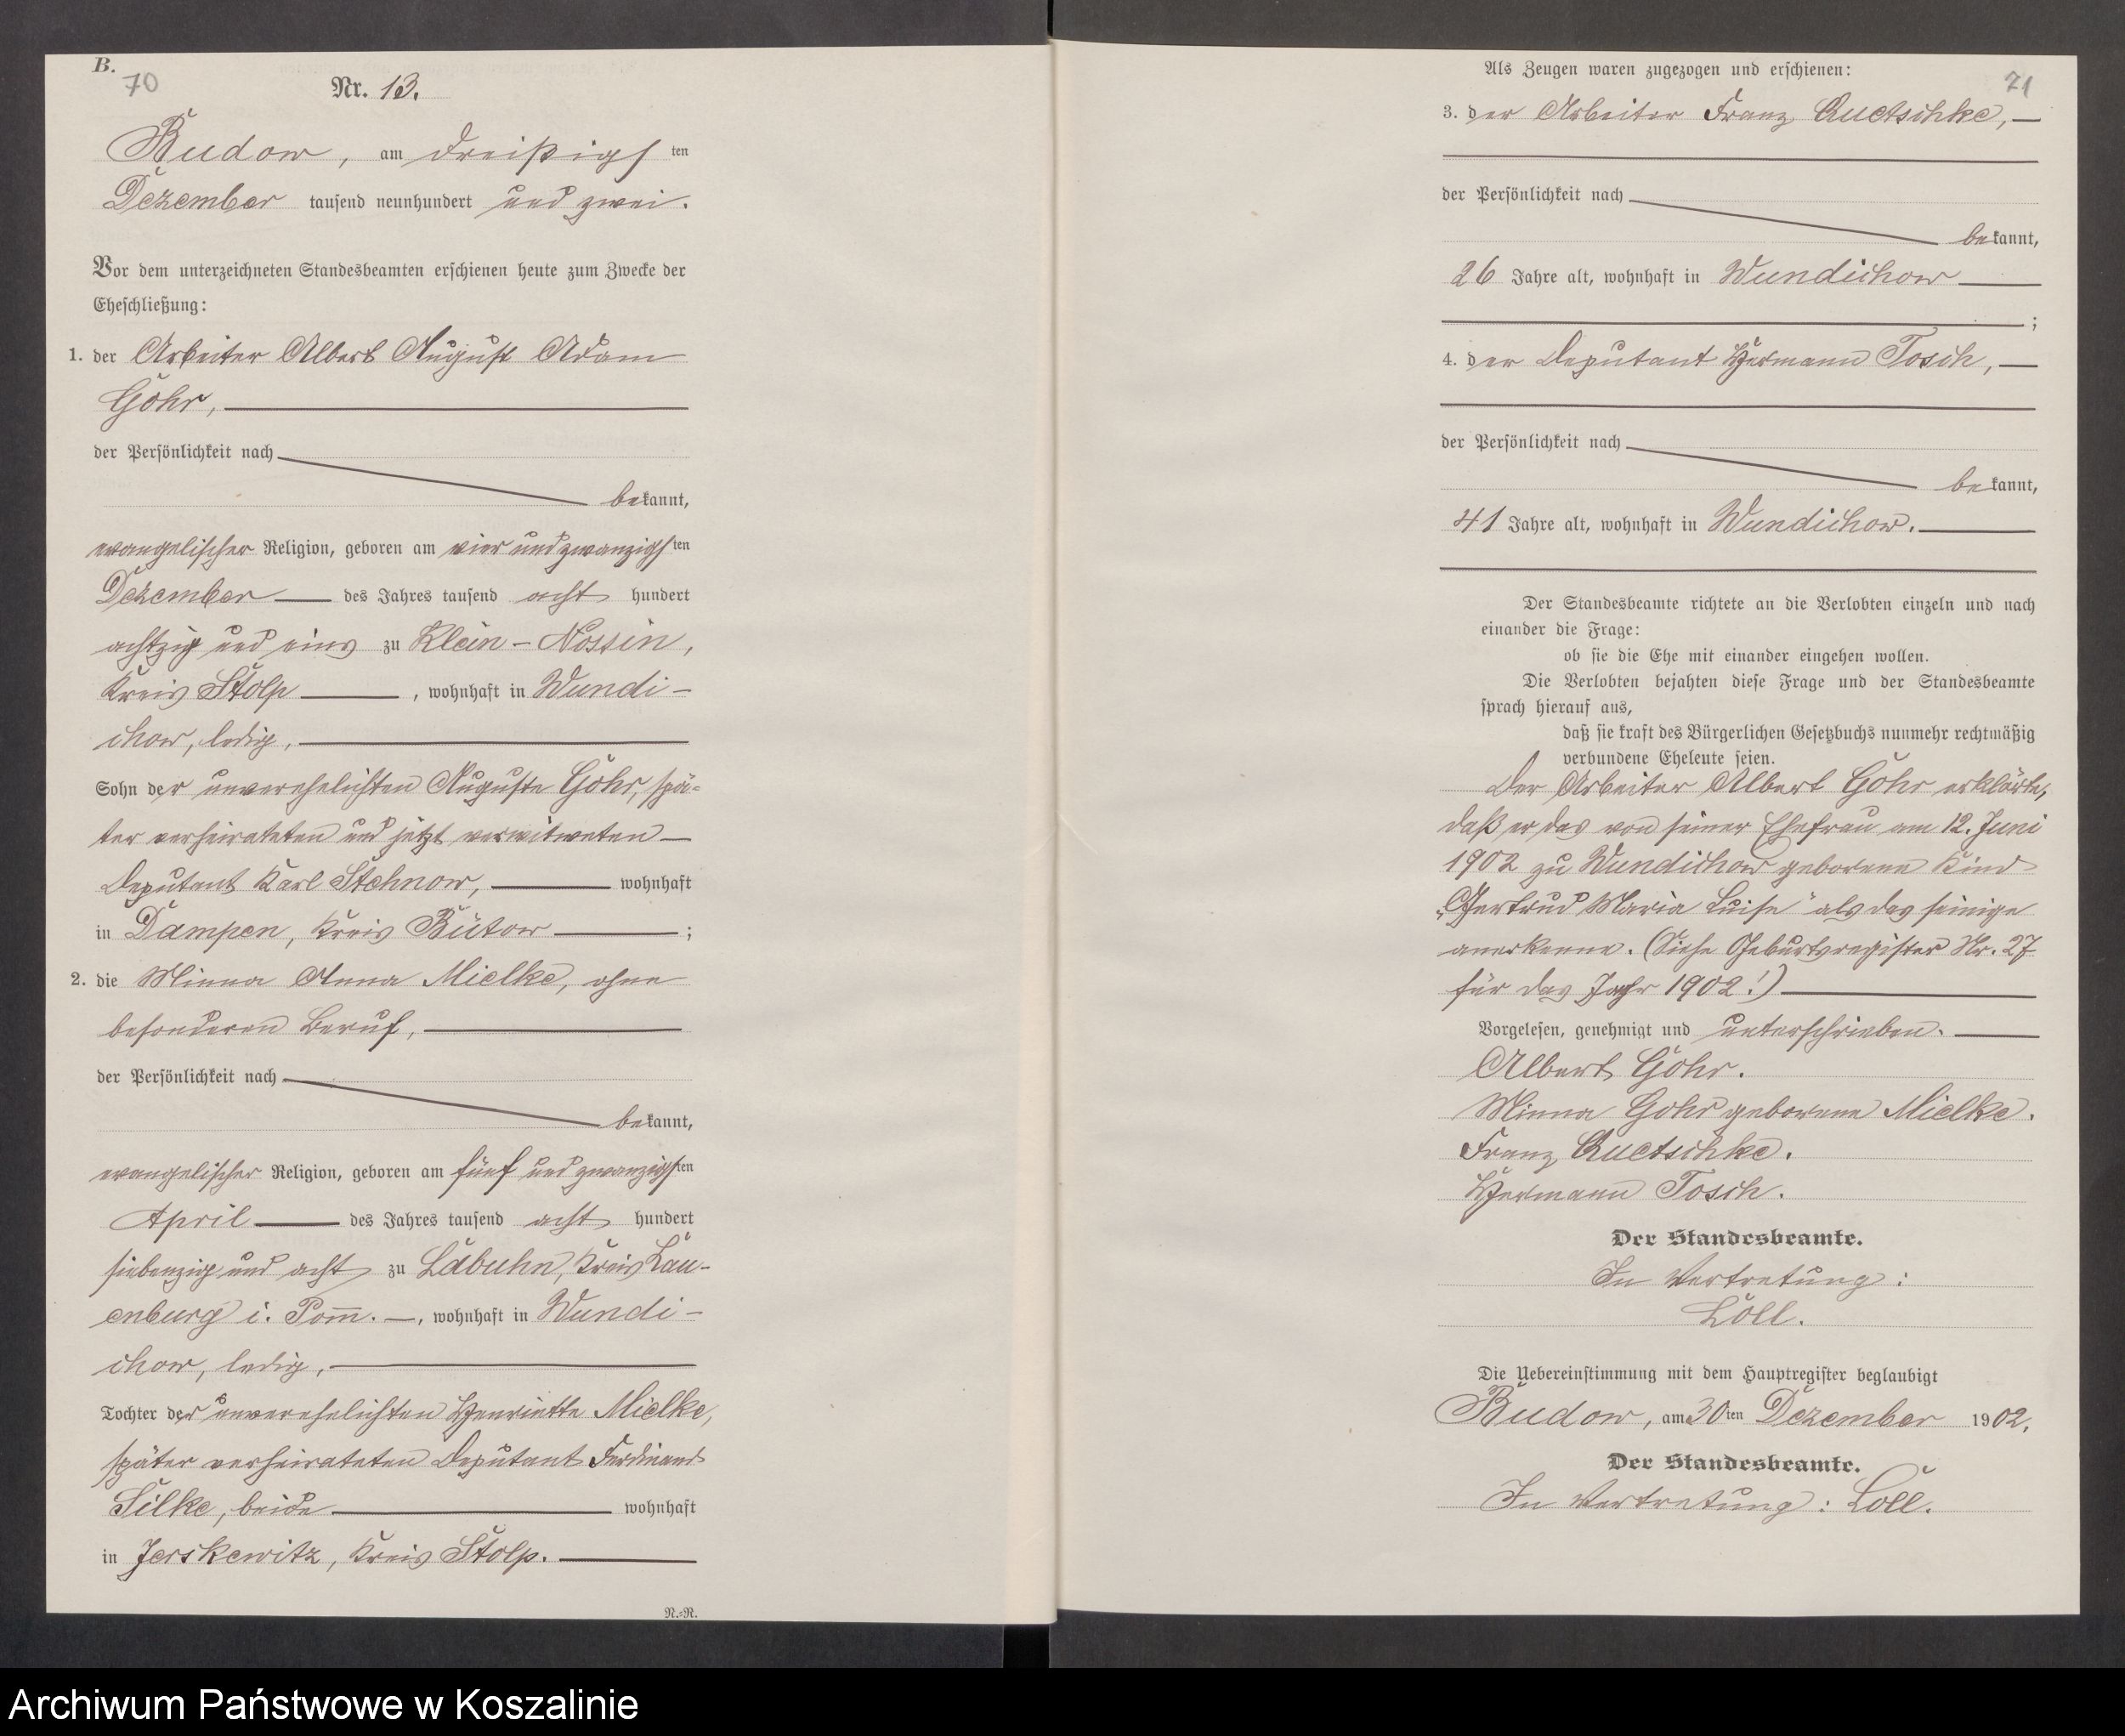 B.
70
Nr. 13.
Budow, am dreißigsten
Dezember tausend neunhundert und zwei.
Vor dem unterzeichneten Standesbeamten erschienen heute zum Zwecke der
Eheschließung:
1. der Arbeiter Albert August Adam
Göhr,
der Persönlichkeit nach
bekannt,
evangelischer Religion, geboren am vier und zwanzigsten
Dezember des Jahres tausend acht hundert
achtzig und eins zu Klein-Nossin,
Kreis Stolp, wohnhaft in Wundi-
chow, ledig,
Sohn der unverehelichten Auguste Göhr, spä-
ter verheirateten und jetzt verwitweten
Deputant Karl Stehnow, wohnhaft
in Dampen, Kreis Bütow ;
2. die Minna Anna Mielke, ohne
besonderen Beruf,
der Persönlichkeit nach
bekannt,
evangelischer Religion, geboren am fünf und zwanzigsten
April des Jahres tausend acht hundert
siebenzig und acht zu Labuhn, Kreis Lau-
enburg i. Pom̅. —, wohnhaft in Wundi-
chow, ledig,
Tochter der unverehelichten Henriette Mielke,
später verheirateten Deputant Ferdinand
Silke, beide wohnhaft
in Jerskewitz, Kreis Stolp.
N.=N.
71
Als Zeugen waren zugezogen und erschienen:
3. der Arbeiter Franz Quetschke, —
der Persönlichkeit nach
bekannt,
26 Jahre alt, wohnhaft in Wundichow
;
4. der Deputant Hermann Tosch, —
der Persönlichkeit nach
bekannt,
41 Jahre alt, wohnhaft in Wundichow.
Der Standesbeamte richtete an die Verlobten einzeln und nach
einander die Frage:
ob sie die Ehe mit einander eingehen wollen.
Die Verlobten bejahten diese Frage und der Standesbeamte
sprach hierauf aus,
daß sie kraft des Bürgerlichen Gesetzbuchs nunmehr rechtmäßig
verbundene Eheleute seien.
Der Arbeiter Albert Göhr erklärte,
daß er das von seiner Ehefrau am 12. Juni
1902 zu Wundichow geborene Kind
„Gertrud Maria Luise" als das seinige
anerkenne. (Siehe Geburtsregister Nr. 27
für das Jahr 1902!)
Vorgelesen, genehmigt und unterschrieben.
Albert Göhr.
Minna Göhr geborene Mielke.
Franz Quetschke.
Hermann Tosch.
Der Standesbeamte.
In Vertretung:
Löll.
Die Uebereinstimmung mit dem Hauptregister beglaubigt
Budow, am 30ten Dezember 1902.
Der Standesbeamte.
In Vertretung: Löll.
Archiwum Państwowe w Koszalinie